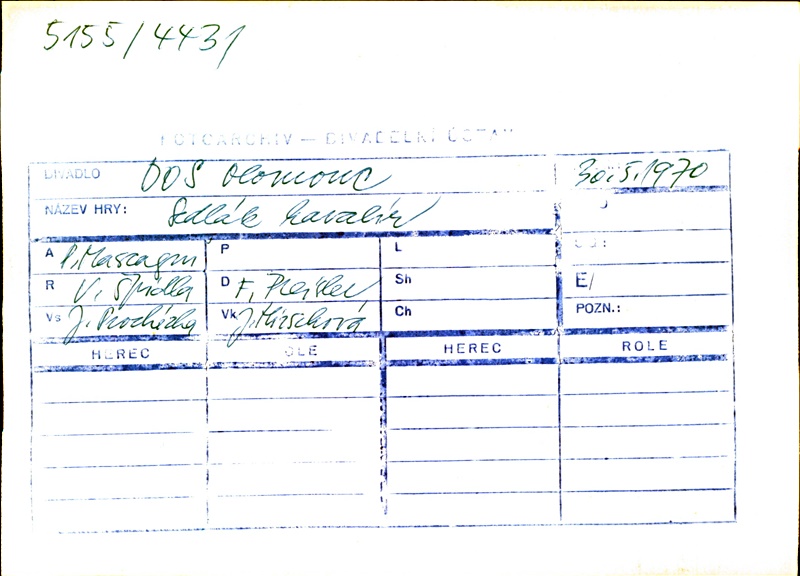 5155/4431
FOTOARCHIV — DIVADELNÍ ÚSTAV
DIVADLO DOS Olomouc 30.5.1970
NÁZEV HRY: Sedlák kavalír
A P. Mascagni P L
R V. Špidla D F. Preisler Sh E/
Vs J. Procházka Vk J. Hirschová Ch POZN.:
HEREC ROLE HEREC ROLE